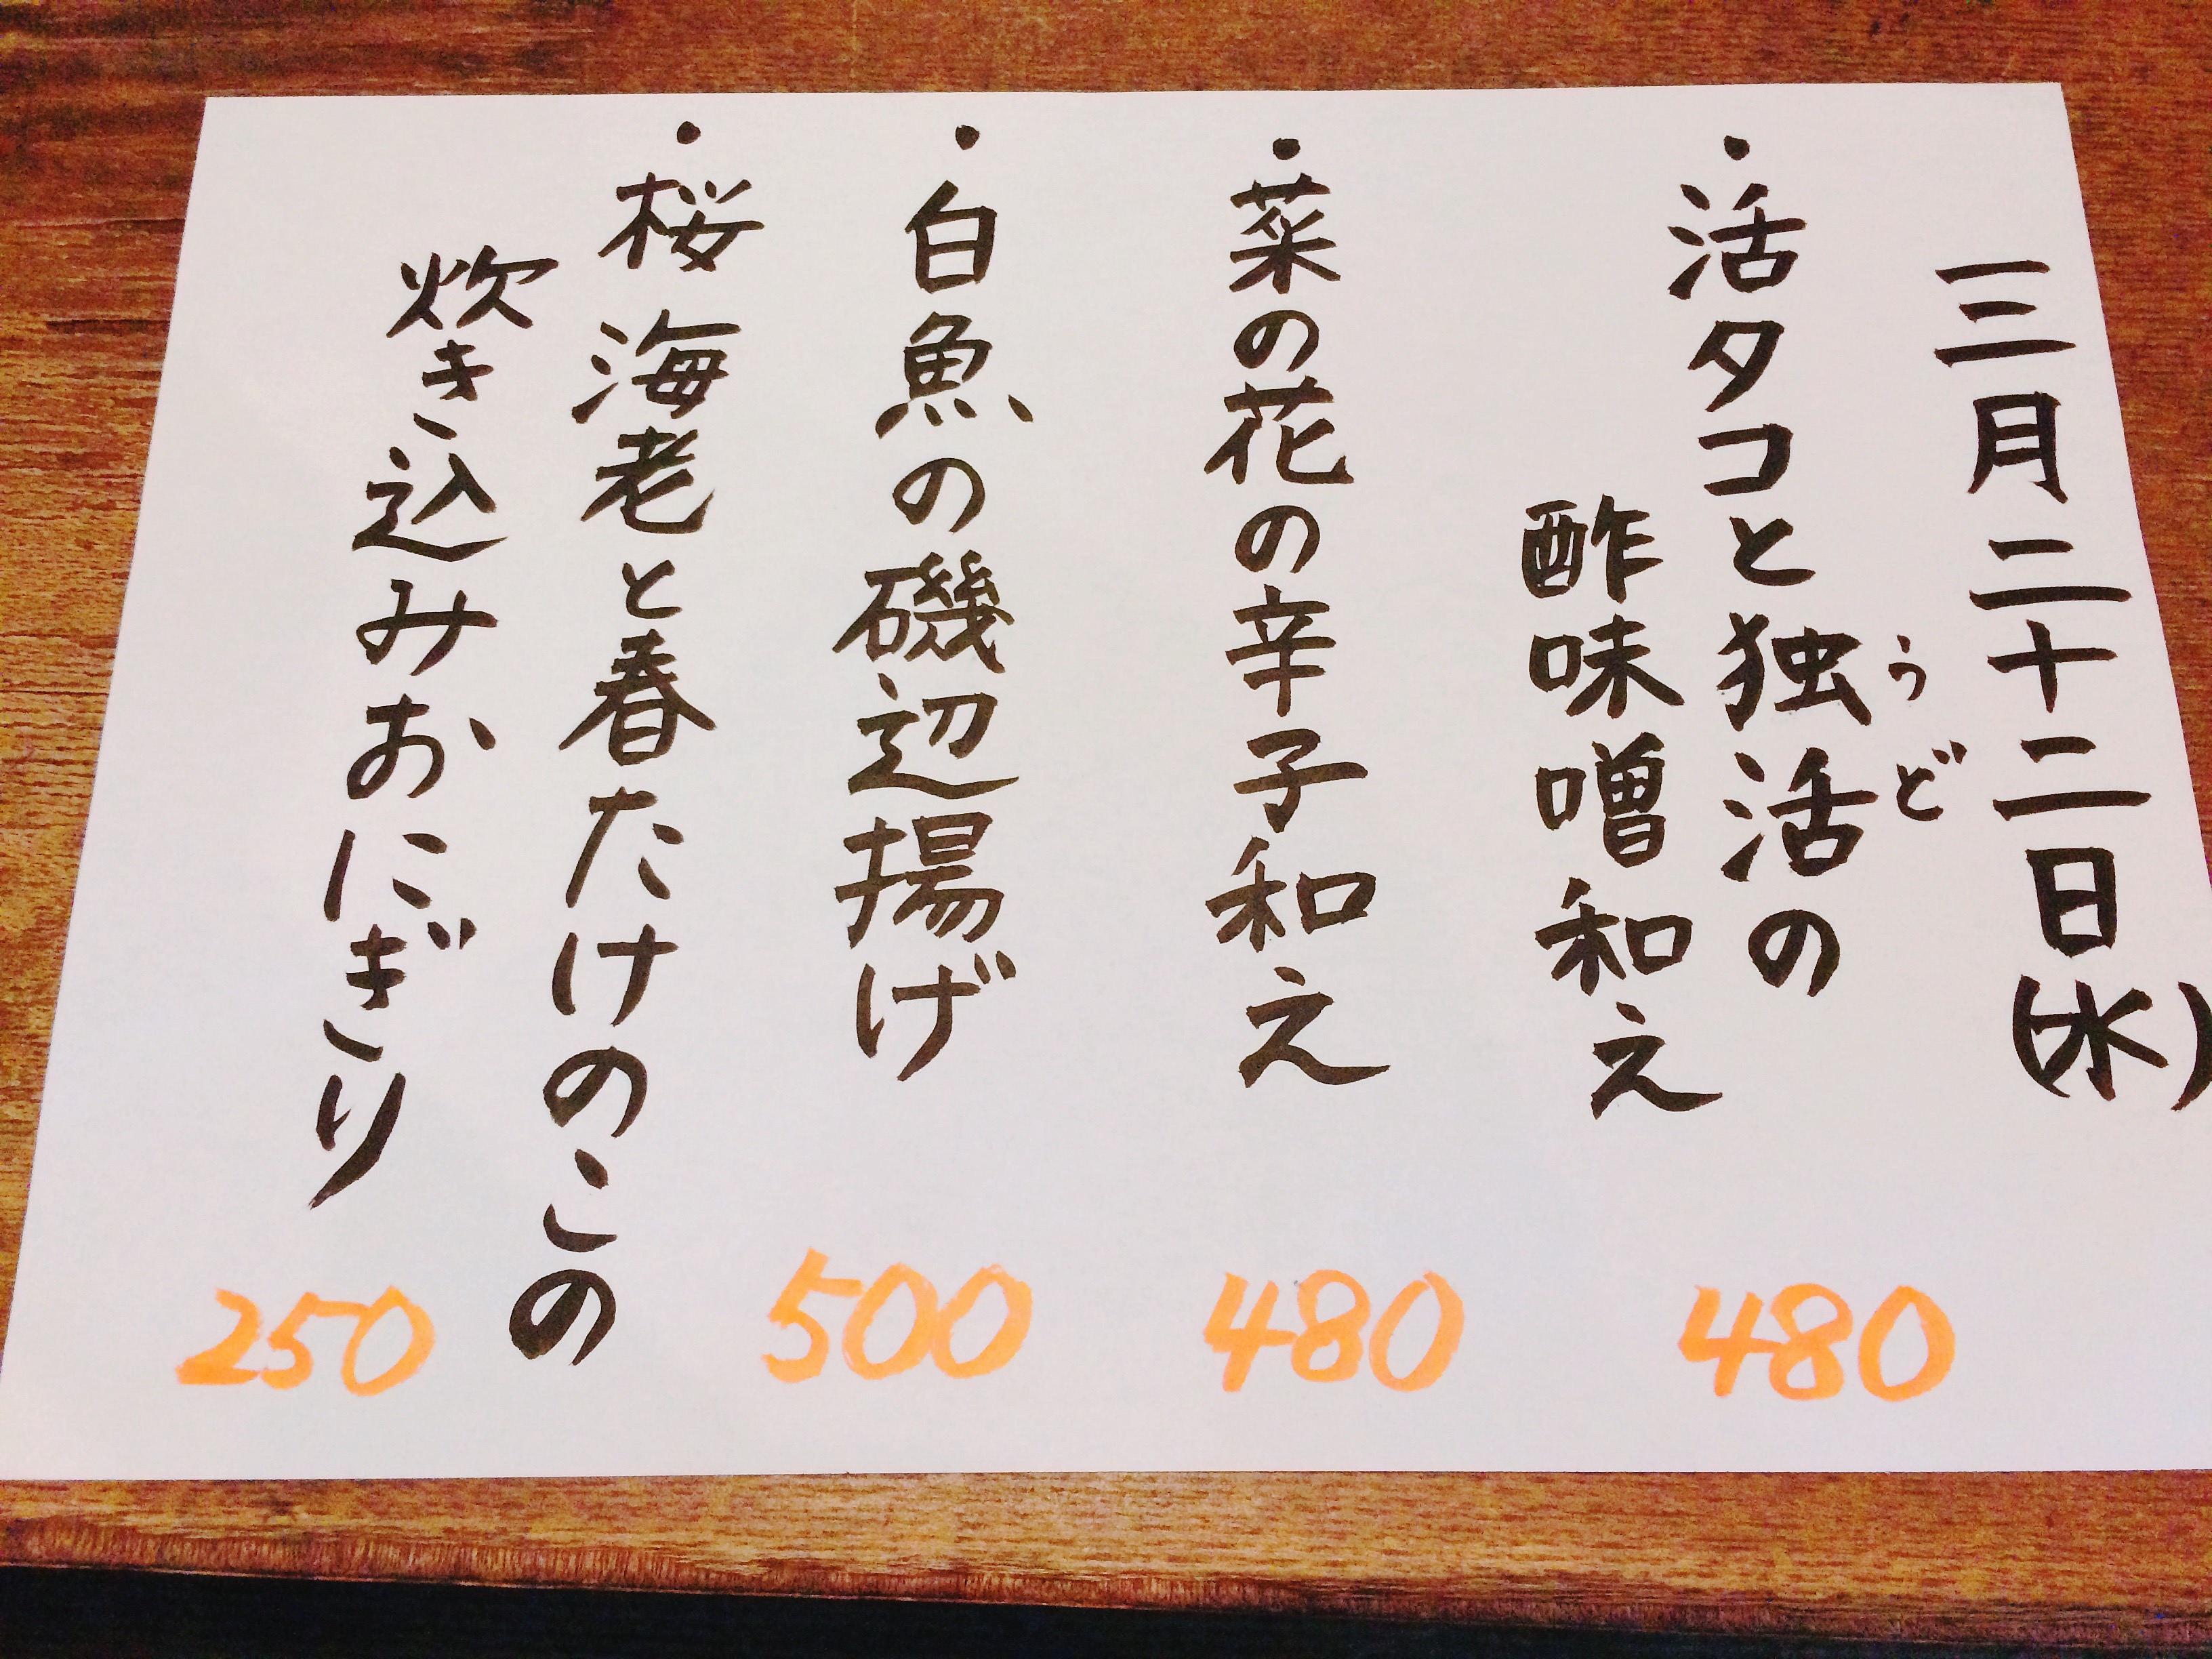 三月二十二日(水)
・活タコと独活の
うど
酢味噌和え
480
・菜の花の辛子和え
480
・白魚の磯辺揚げ
500
・桜海老と春たけのこの
炊き込みおにぎり
250